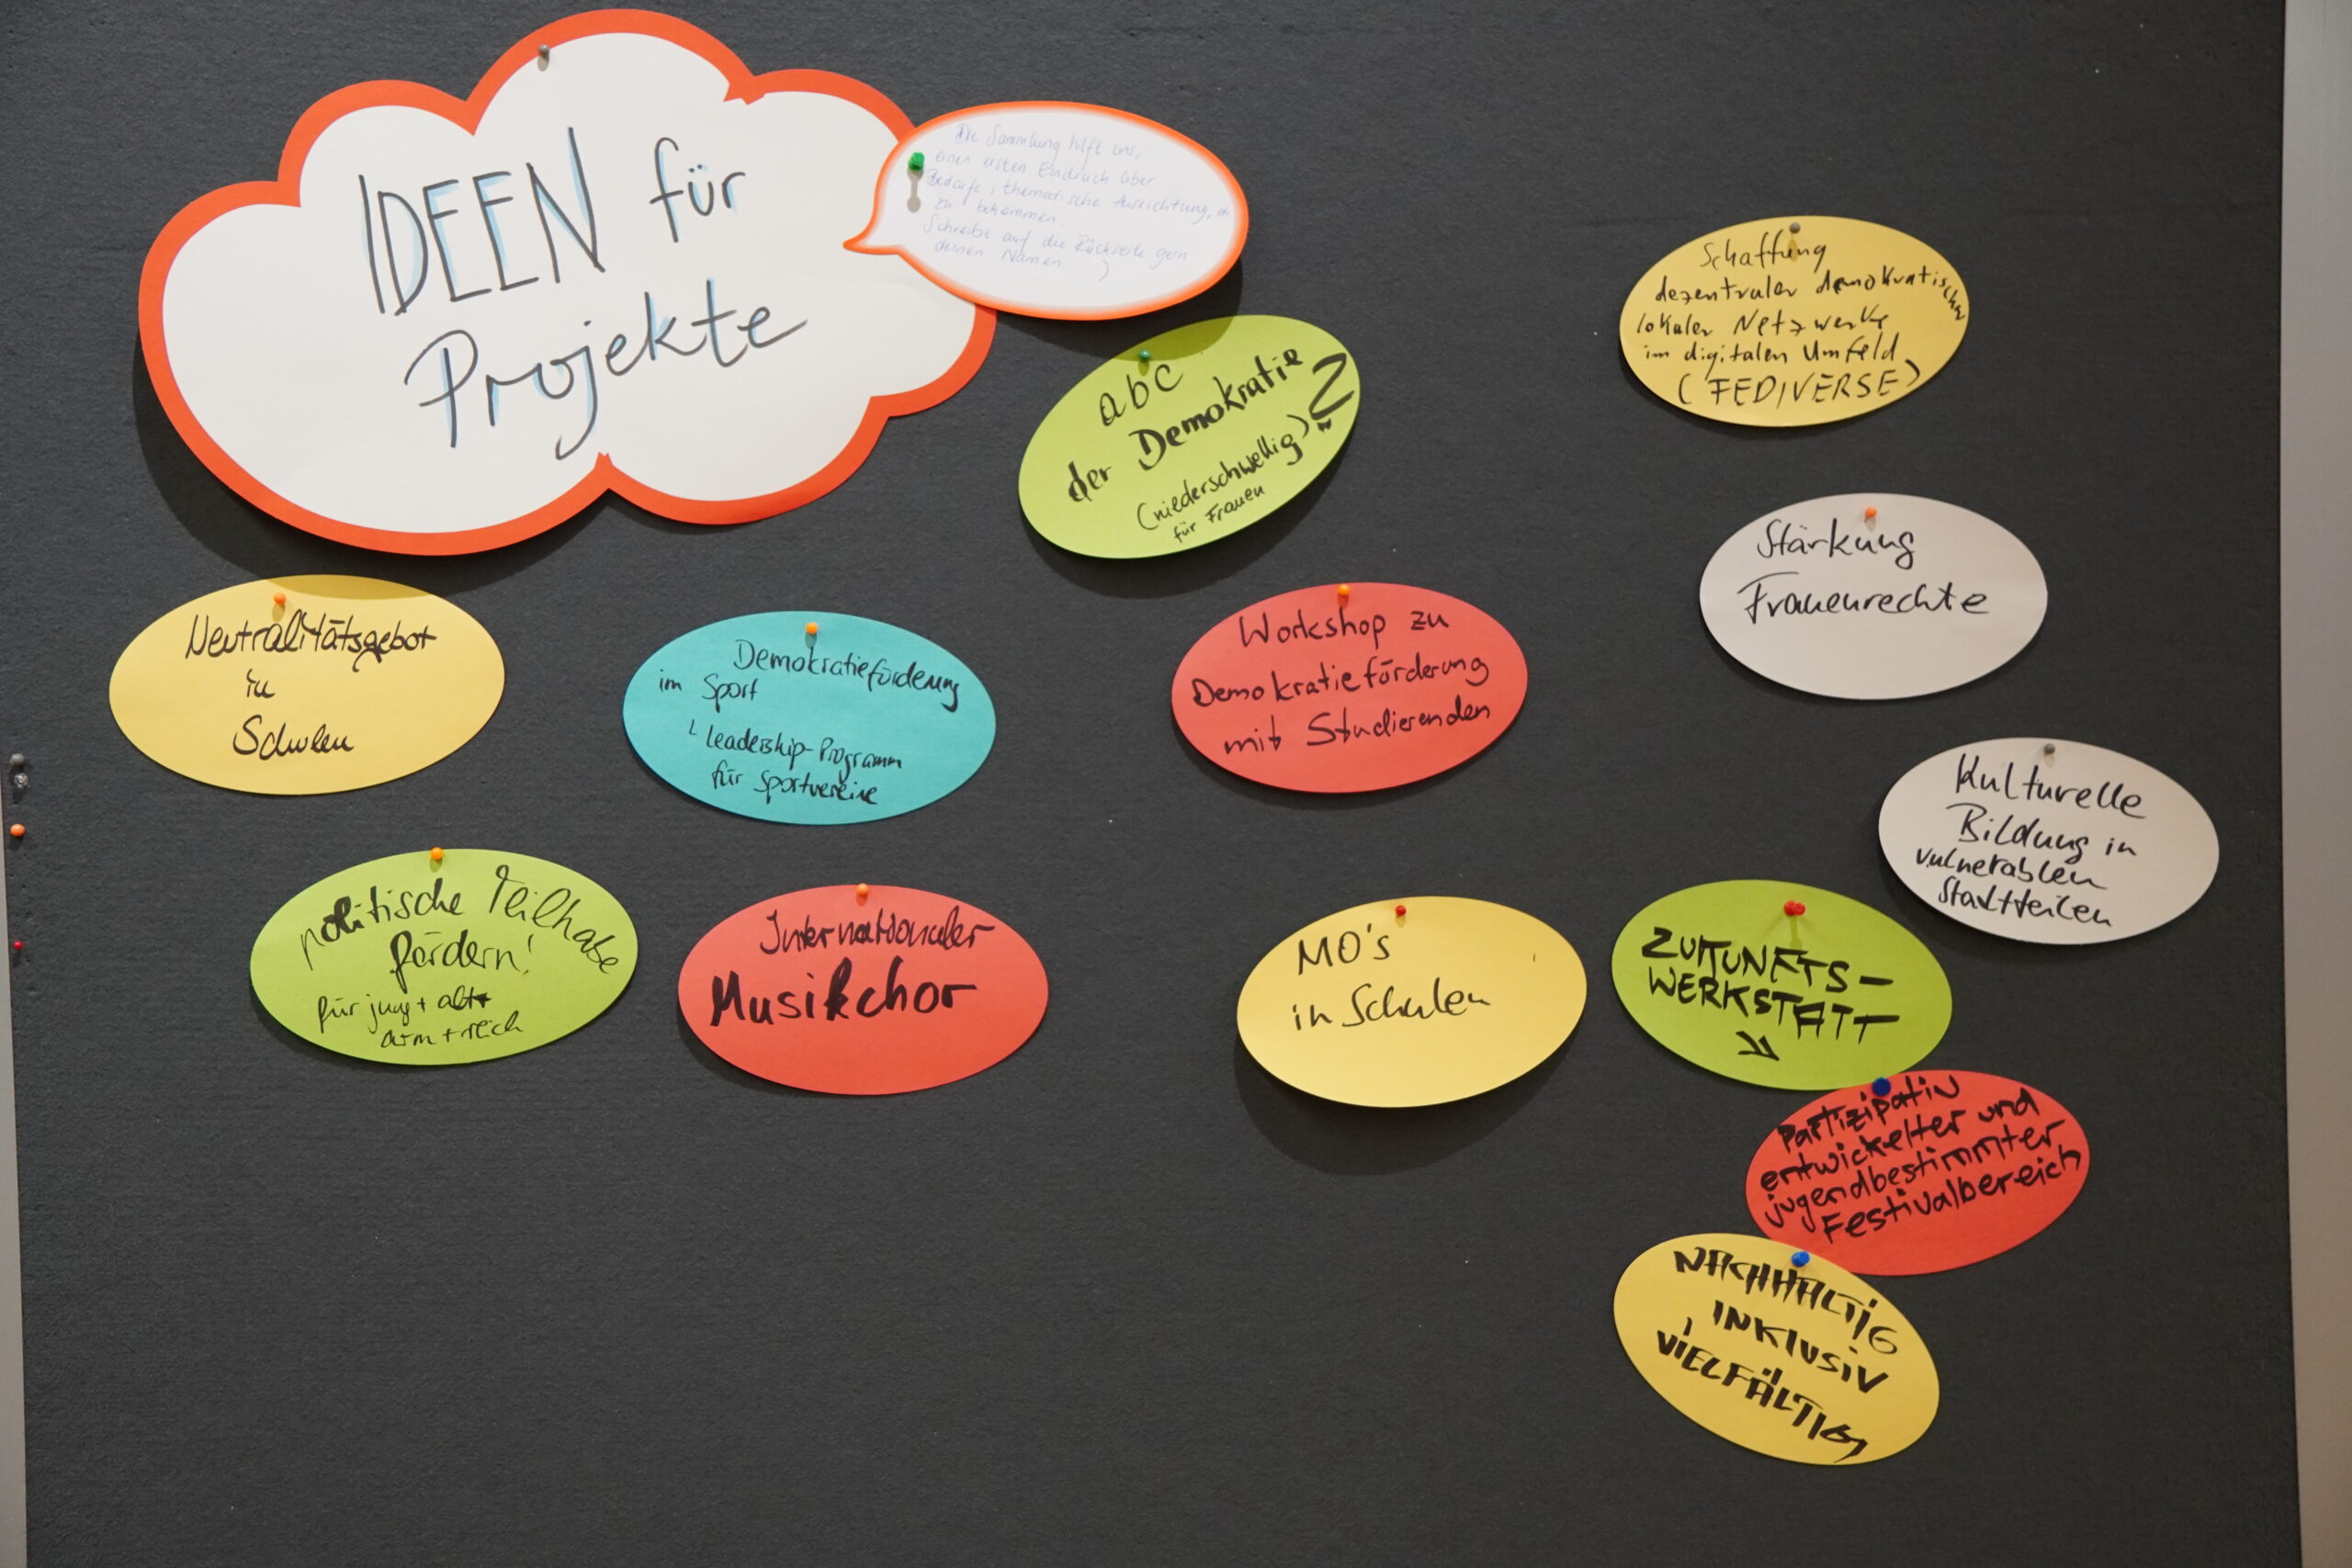 IDEEN für
Projekte
Die Sammlung hilft uns,
einen ersten Eindruck über
Bedarfe, thematische Ausrichtung,
zu bekommen
Schreibe auf die Rückseite gern
deinen Namen :)
abc
der Demokratie
(niederschwellig)
für Frauen
Schaffung
dezentraler demokratischer
lokaler Netzwerke
im digitalen Umfeld
(FEDIVERSE)
Stärkung
Frauenrechte
Neutralitätsgebot
in
Schulen
Demokratieförderung
im Sport
Leadership-Programm
für Sportvereine
Workshop zu
Demokratieförderung
mit Studierenden
Kulturelle
Bildung in
vulnerablen
Stadtteilen
politische Teilhabe
fördern!
für jung + alt +
arm + reich
Internationaler
Musikchor
MO's
in Schulen
ZUKUNFTS-
WERKSTATT
Partizipativ
entwickelter und
jugendbestimmter
Festivalbereich
NACHHALTIG
INKLUSIV
VIELFÄLTIG